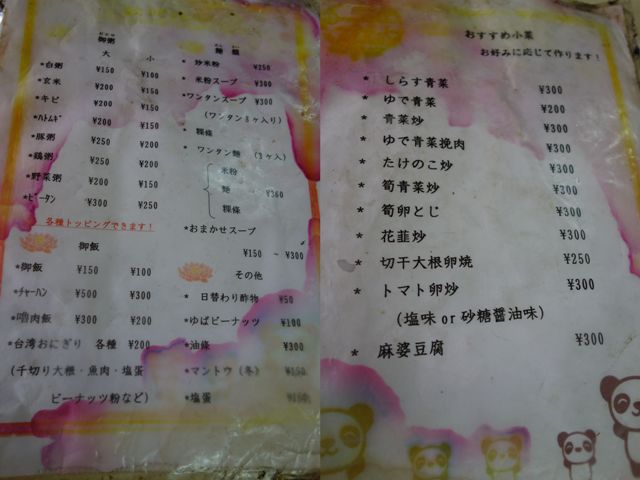 御粥
大 小
*白粥 ¥150 ¥100
*玄米 ¥200 ¥150
*キビ ¥200 ¥150
*ハトムギ ¥200 ¥150
*豚粥 ¥250 ¥200
*鶏粥 ¥250 ¥200
*野菜粥 ¥200 ¥150
*ピータン ¥300 ¥250
各種トッピングできます！
御飯
*御飯 ¥150 ¥100
*チャーハン ¥500 ¥300
*嚕肉飯 ¥300 ¥200
*台湾おにぎり 各種 ¥200
(千切り大根・魚肉・塩蛋
ピーナッツ粉など)
麺類
* 炒米粉 ¥250
* 米粉スープ ¥300
*ワンタンスープ ¥300
(ワンタン8ヶ入り)
* 粿條
* ワンタン麺 (3ヶ入)
米粉
麺 ¥360
粿條
*おまかせスープ
¥150 ~ ¥300
その他
* 日替わり酢物 ¥50
*ゆばピーナッツ ¥100
*油條 ¥300
*マントウ(冬) ¥150
*塩蛋 ¥150
おすすめ小菜
お好みに応じて作ります！
* しらす青菜 ¥300
* ゆで青菜 ¥200
* 青菜炒 ¥300
* ゆで青菜挽肉 ¥300
* たけのこ炒 ¥300
* 筍青菜炒 ¥300
* 筍卵とじ ¥300
* 花韮炒 ¥300
* 切干大根卵焼 ¥250
* トマト卵炒 ¥300
(塩味 or 砂糖醤油味)
* 麻婆豆腐 ¥300